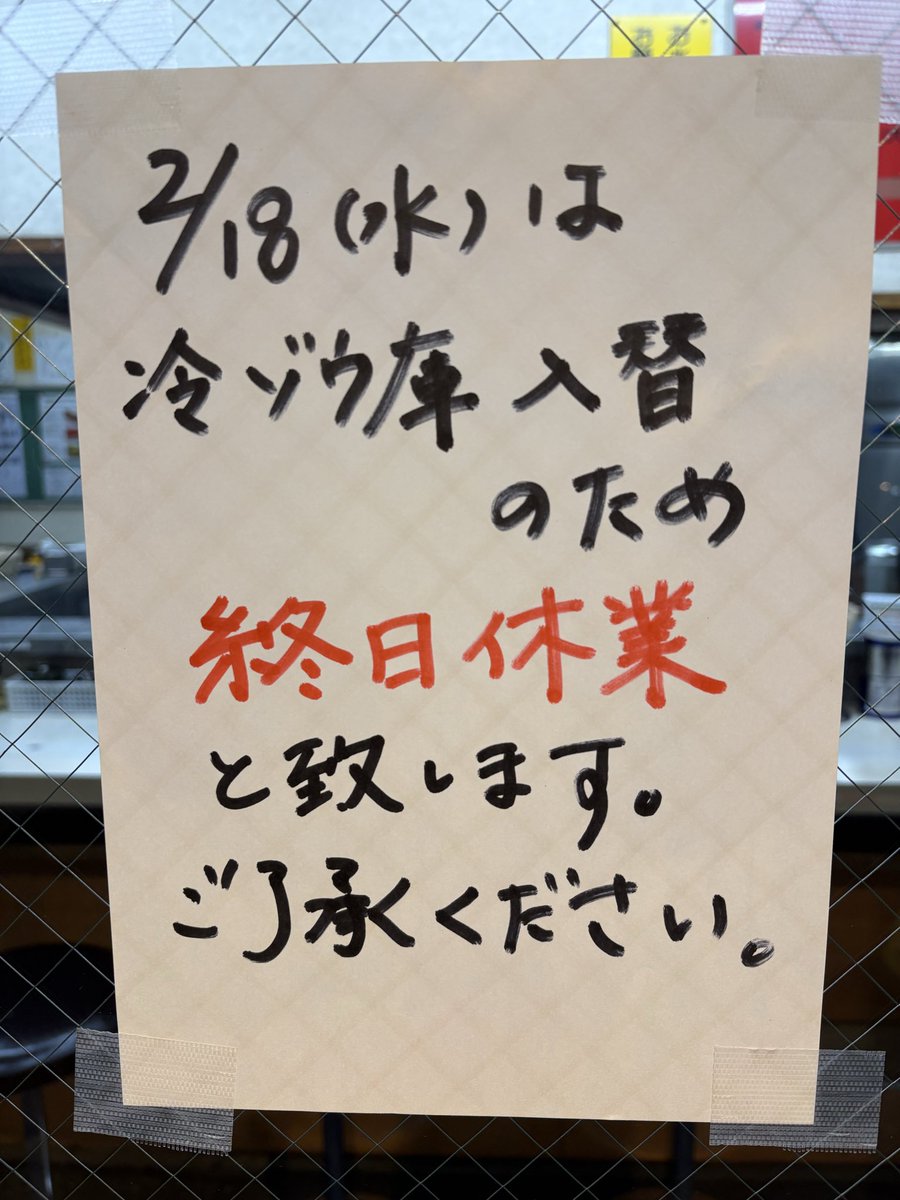 2/18(水)は
冷ゾウ庫入替
のため
終日休業
と致します。
ご了承ください。